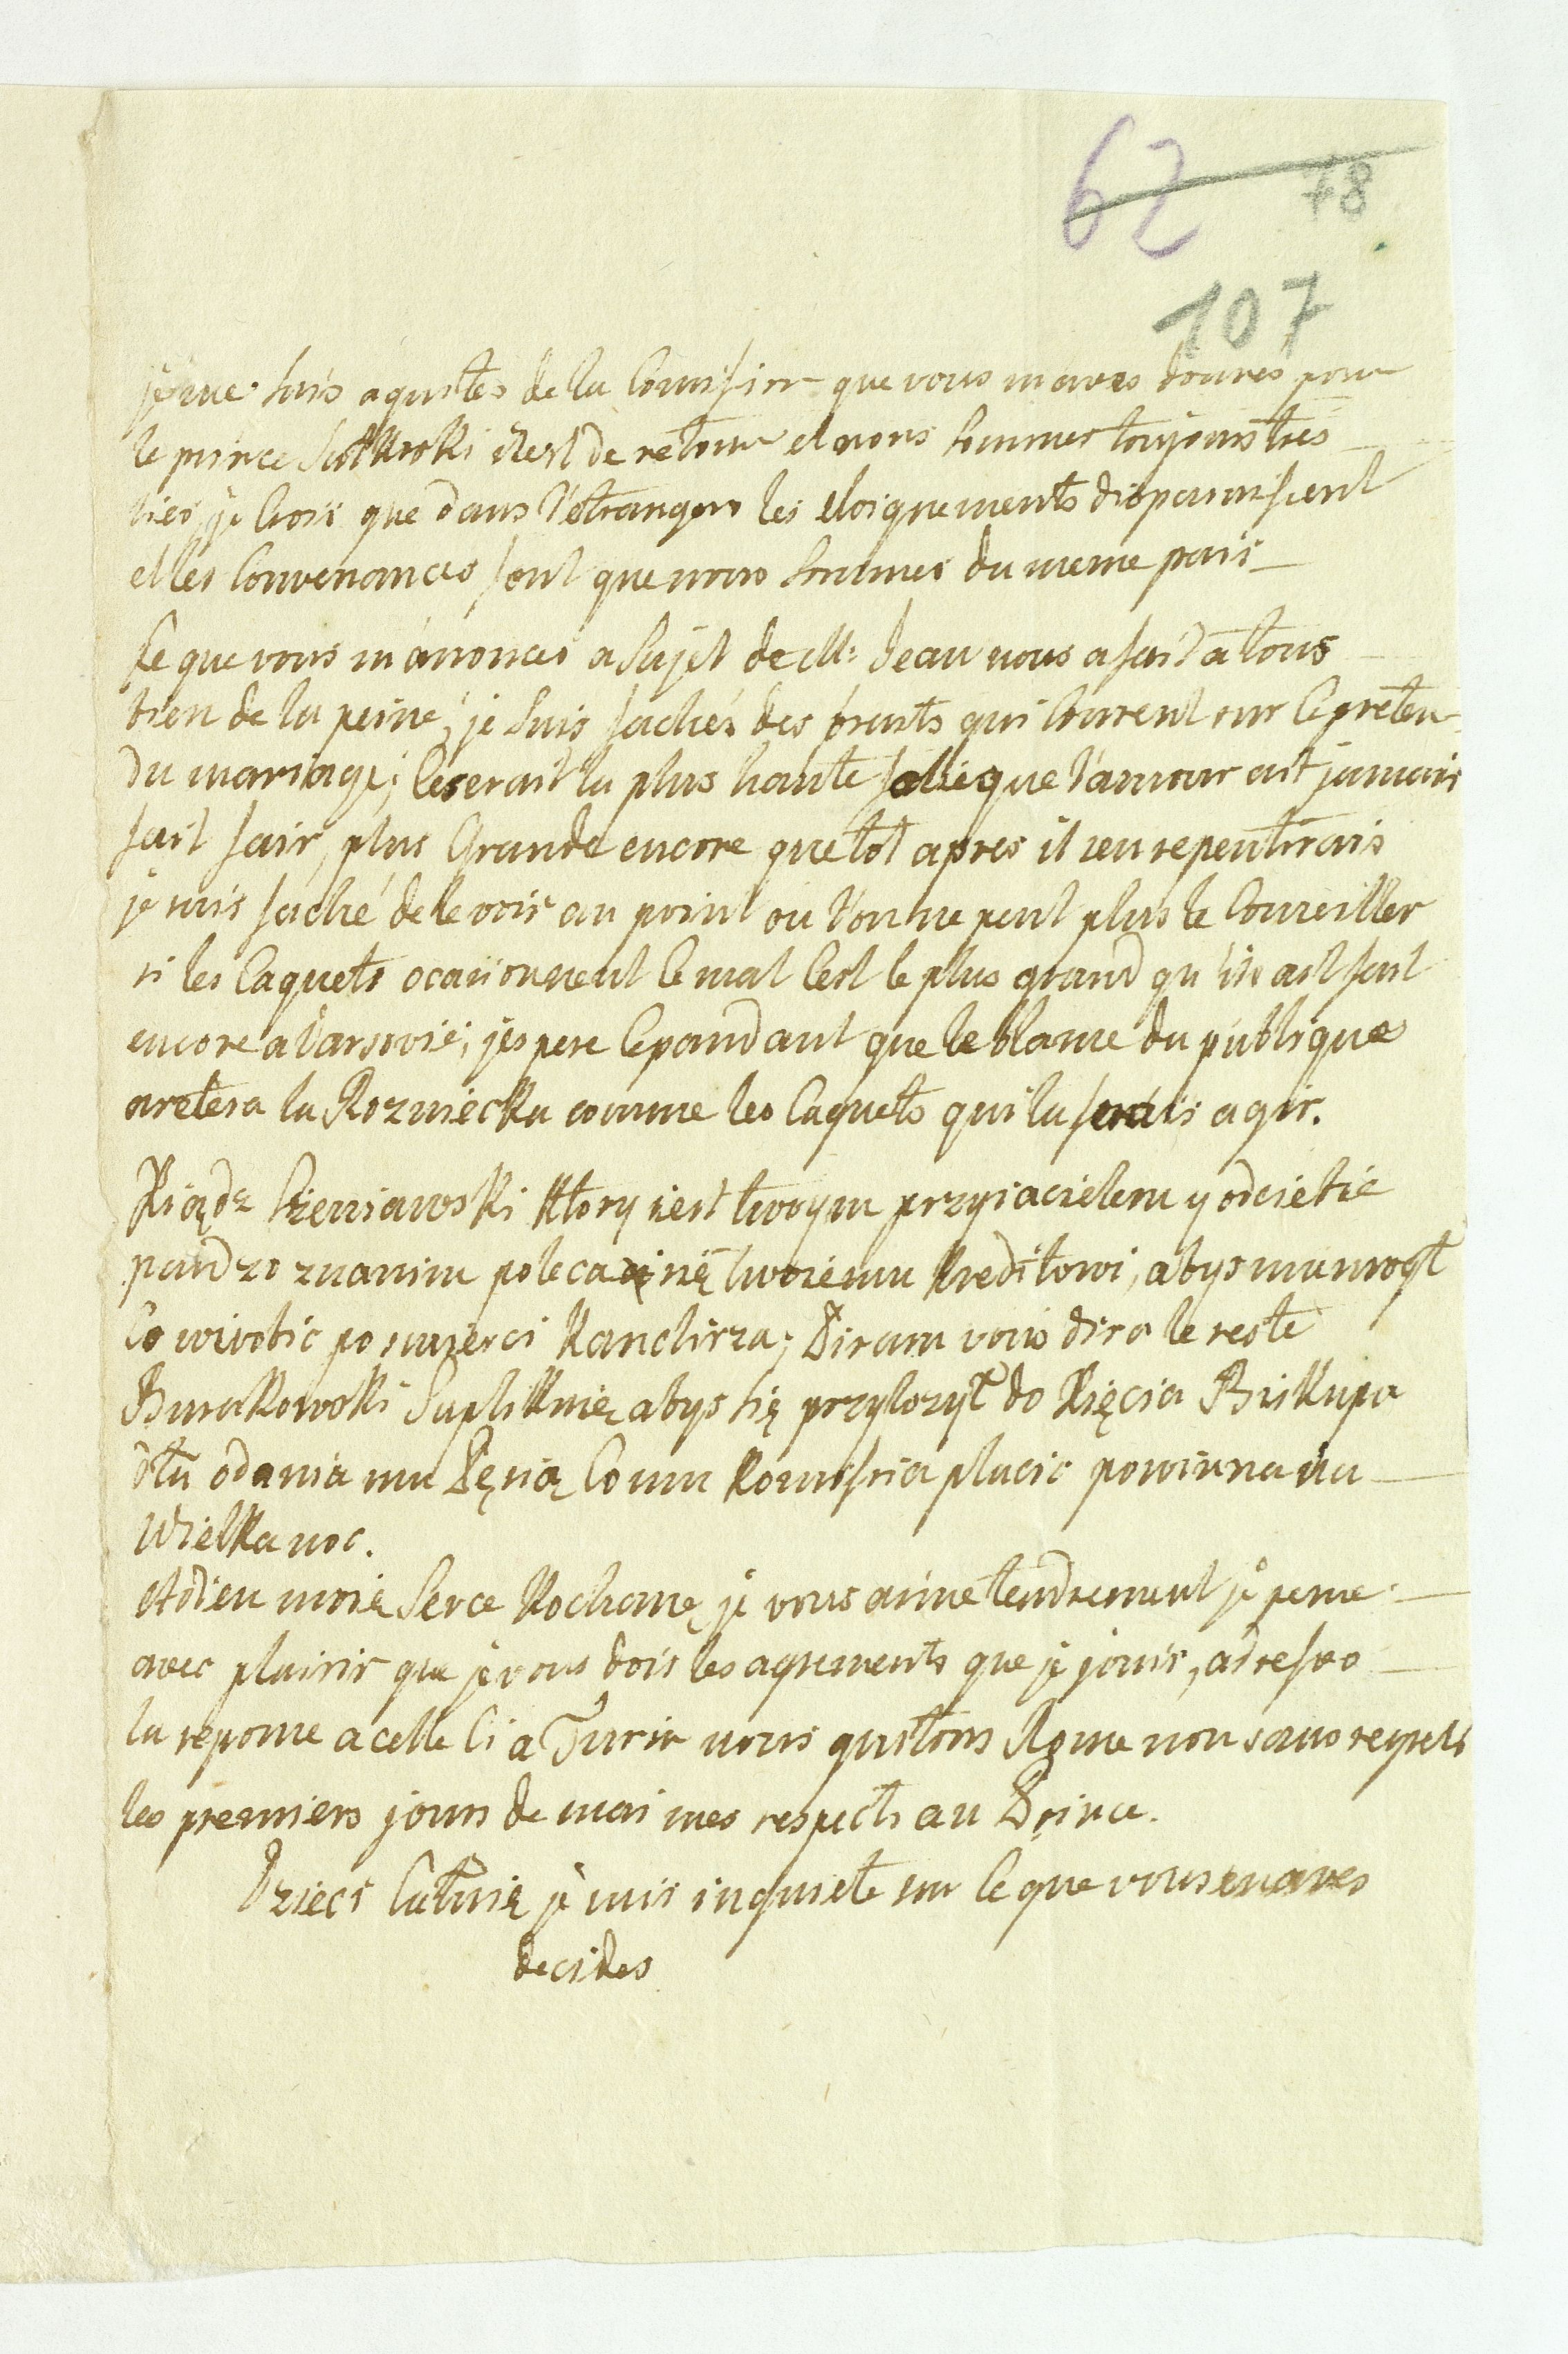 62 78
107
je me suis aquités de la Comission que vous m'aves donnés pour
le prince Sulkoski il est de retour et nous sommes toujours très
liés, je crois que dans l'étrangers les eloignements disparaissent
et les Convenances font que nous sommes du meme pais
Ce que vous m'anonces a Sujet de Mr: Jean nous a fait a tous
bien de la peine, je suis fachés des bruits qui Courent sur le preten-
du mariage; Ce serait la plus haute folie que l'amour ait jamais
fait fair, plus Grande encore que tôt apres il s'en repentirais
je suis faché de le voir au point ou l'on ne peut plus le Conseiller
si les Caquets ocasionnent le mal C'est le plus grand qu'ils ait fait
encore a Varsovie, j'espere Cepandant que le blame du publique
aretera la Rozniecka comme les Caquets qui la ferais agir.
Xiądz Sieniawski Ktory iest twoym przyiacielem y odciebie
poleca się twoiemu kreditowi, abys mu mogł
Co wirobic po smierci Kanclirza; Diram vous dira le reste
Burakowski Suplikuie abys się przylozył do Xięcia Biskupa
dla odania mu Pęsią Co mu Komissia placic powinna na
Wielkanoc.
Adieu moie Serce Kochane, je vous aime tendrement je pense
avec plaisir que je vous dois les agrements que je jouis, adresses
la reponse a celle Ci a Turin nous quitons Rome non sans regrets
les premiers jours de mai mes respects au Prince.
Dzieci Caluię je suis inquiete sur le que vous en aves
decides